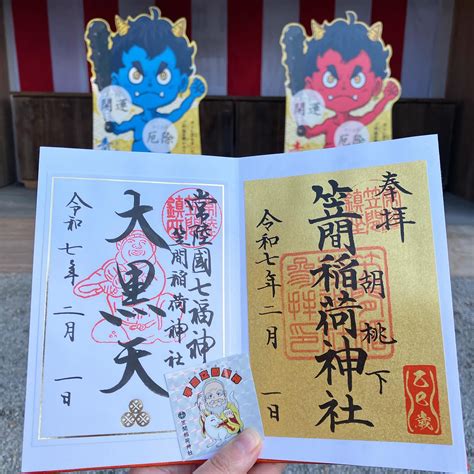 開運
厄除
開運
厄除
奉拝
胡桃下
笠間稲荷神社
令和七年二月一日
乙巳歳
常陸國七福神
笠間稲荷神社
大黒天
令和七年二月一日